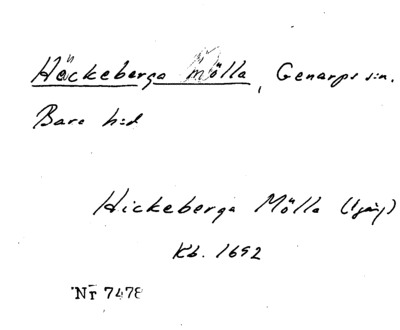 Häckeberga mölla, Genarps sn.
Bara hd
Hickeberga Mölla (1 gång)
Kb. 1692
Nr 7478